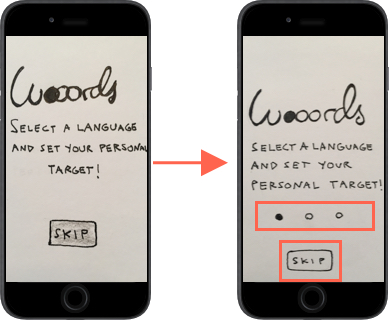 Woooords
SELECT A LANGUAGE
AND SET YOUR PERSONAL
TARGET!
SKIP
Woooords
SELECT A LANGUAGE
AND SET YOUR
PERSONAL TARGET!
SKIP